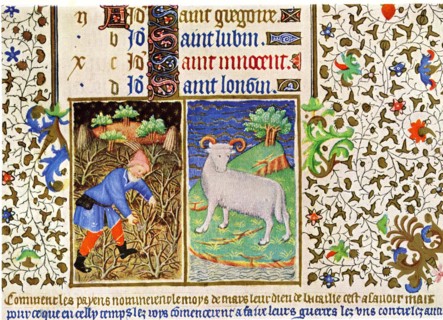 n A Id Saint gregoire.
b Id Saint lubin.
x c Id Saint innocent.
d Id Saint longin.
Comment les payens nommerent le moys de mars leur dieu de bataille cest asavoir mars
pour ce que en celly temps les roys commencerent a faire leurs guerres les uns contre les